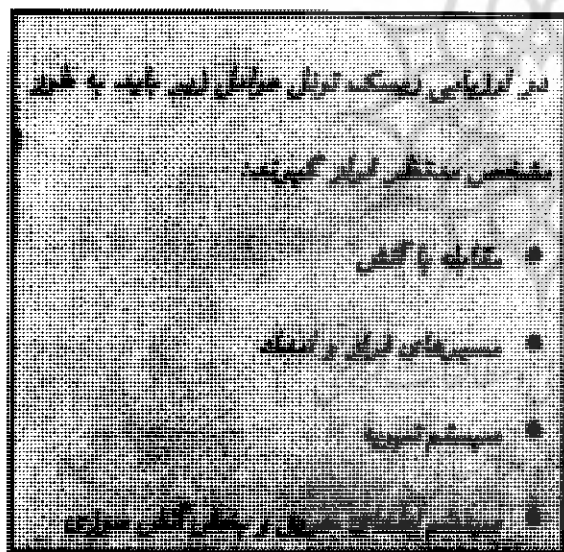 در ارزیابی ریسک تونل عوامل زیر باید به طور
مشخص مدنظر قرار گیرند:
• مقابله با آتش
• مسیرهای فرار و امداد
• سیستم تهویه
• سیستم حریق و آتش سوزی